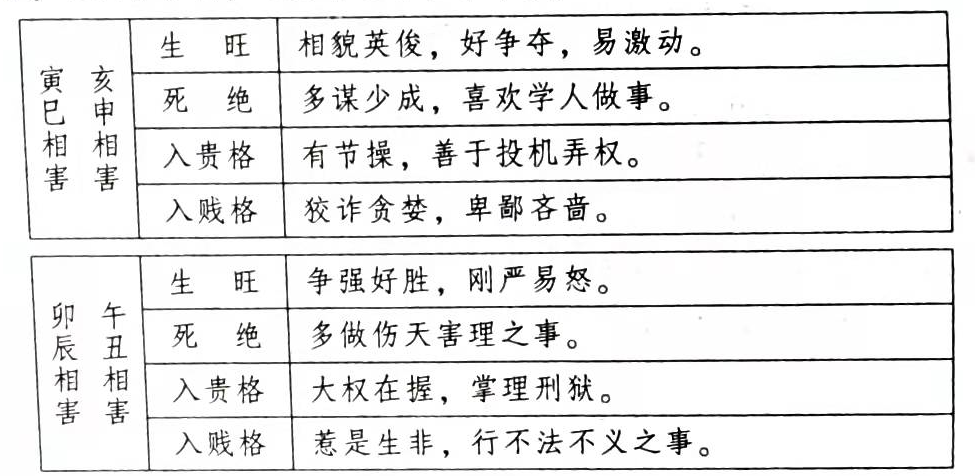 寅巳相害 亥申相害
生 旺 相貌英俊，好争夺，易激动。
死 绝 多谋少成，喜欢学人做事。
入贵格 有节操，善于投机弄权。
入贱格 狡诈贪婪，卑鄙吝啬。
卯辰相害 午丑相害
生 旺 争强好胜，刚严易怒。
死 绝 多做伤天害理之事。
入贵格 大权在握，掌理刑狱。
入贱格 惹是生非，行不法不义之事。